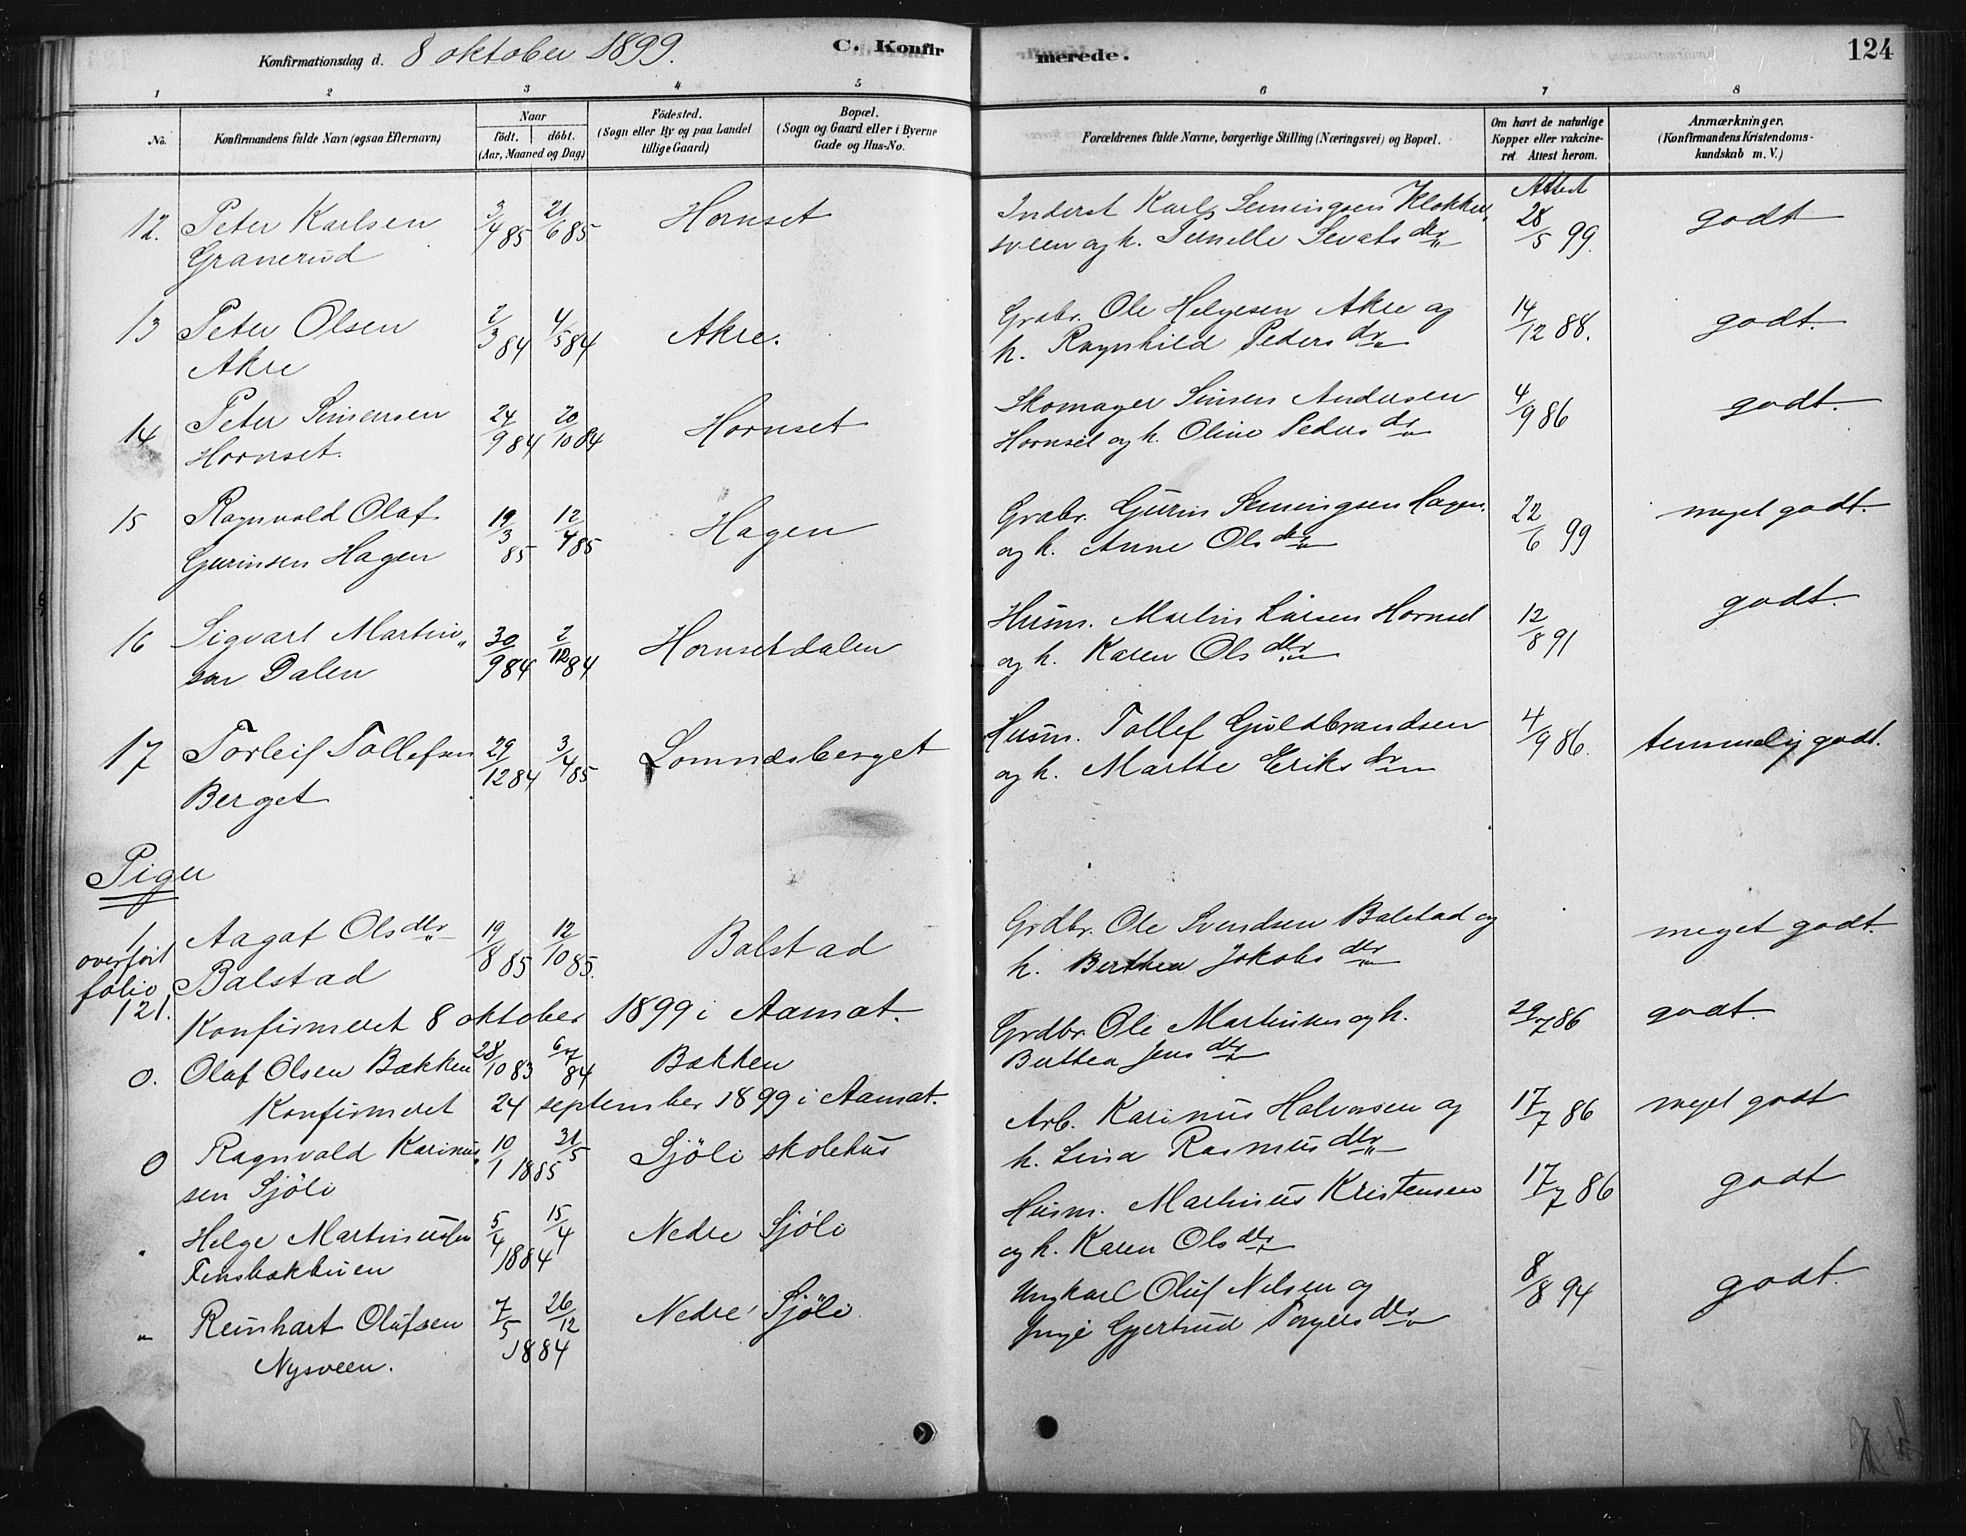 Konfirmationsdag d. 8 oktober 1899. C. Konfirmerede. 124
1 2 3 4 5 6 7 8
No. Konfirmandens fulde Navn (ogsaa Efternavn) Naar födt. döbt. (Aar, Maaned og Dag) Födested. (Sogn eller By og paa Landet tillige Gaard) Bopæl. (Sogn og Gaard eller i Byerne Gade og Hus-No. Forældrenes fulde Navne, borgerlige Stilling (Næringsvei) og Bopæl. Om havt de naturlige Kopper eller vakcineret Attest herom. Anmærkninger. (Konfirmandens Kristendomskundskab m. V.)
Attest
12. Peter Karlsen 3/4 85 21/6 85 Hornset Inderst Karl Semingsen Klokker„ 28/5 99. godt
Granerud sveen og h. Pernelle Sevats dtr
13 Peter Olsen 2/3 84 4/5 84 Akre. Grdbr. Ole Helgesen Akre og 14/12 88. godt.
Akre h. Ragnhild Peders dr
14 Peter Simensen 24/9 84 20/10 84 Hornset Skomager Simen Andersen 4/9 86 godt.
Hornset. Hornset og h. Oline Peders dr
15 Ragnvald Olaf 19/3 85 12/4 85 Hagen Grdbr. Gurin Semingsen Hagen 22/6 99 meget godt.
Gurinsen Hagen og h. Anne Ols dtr
16 Sigvart Martin„ 30/9 84 2/12 84 Hornsetdalen Husm. Martin Larsen Hornset 12/8 91 godt.
sen Dalen og h. Karen Ols dtr
17 Torleif Tollefsen 29/12 84 3/4 85 Lomndsberget Husm. Tollef Guldbrandsen 4/9 86. temmelig godt.
Berget og h. Marthe Eriks dr
Piger
1 Aagot Olsdtr 19/8 85 12/10 85. Balstad Grdbr. Ole Svendsen Balstad og meget godt.
overfört folio 121. Balstad h. Berthea Jakobs dtr
Konfirmeret 8 oktober 1899 i Aamot.
0. Olaf Olsen Bækken 28/10 83 6/7 84 Bækken Grdbr. Ole Martinsen og h. 29/7 86 godt.
Berthea Jens dtr
Konfirmeret 24 september 1899 i Aamot.
0 Ragnvald Karinus„ 10/1 1885 31/5 Sjöli skolehus Arb. Karinus Halvorsen og 17/7 86 meget godt
sen Sjöli h. Lina Rasmus dtr
" Helge Martinussen 5/4 15/4 1884 Nedre Sjöli Husm. Martinus Kristensen 17/7 86 godt
Fensbakbuen og h. Karen Ols dtr
" Reinhart Olufsen 7/5 26/12 1884 Nedre Sjöli Ungkarl Oluf Nilsen og 8/8 94 godt.
Nysveen. Pige Gjertrud Torgers dtr